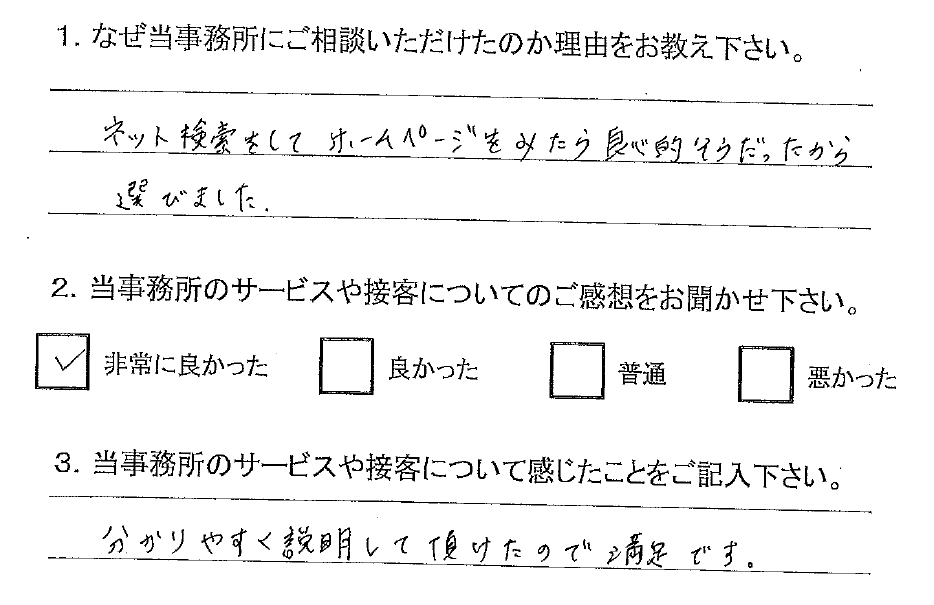 1. なぜ当事務所にご相談いただけたのか理由をお教え下さい。
ネット検索をして ホームページをみたら良心的そうだったから
選びました.
2. 当事務所のサービスや接客についてのご感想をお聞かせ下さい。
✓ 非常に良かった □ 良かった □ 普通 □ 悪かった
3. 当事務所のサービスや接客について感じたことをご記入下さい。
分かりやすく説明して頂けたので満足です。